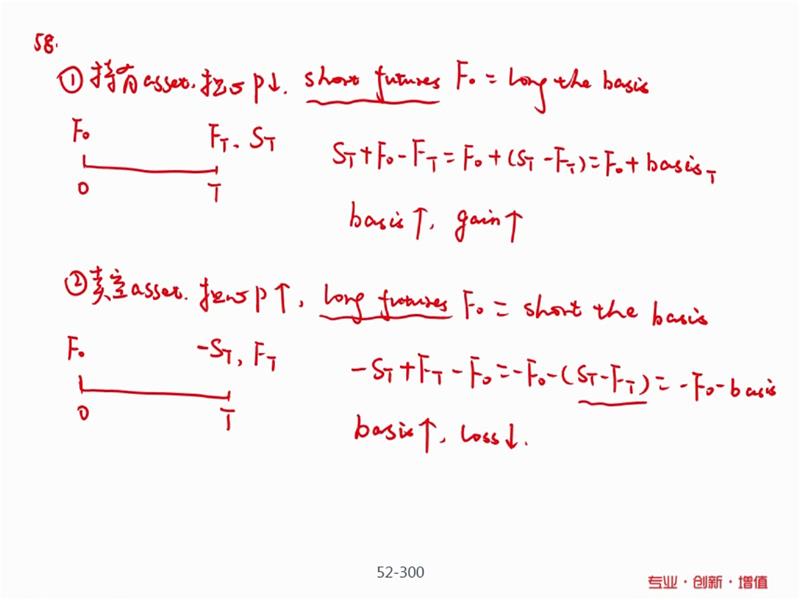 58.
① 持有asset. 担心P↓. short futures F₀ = long the basis
F₀ F_T. S_T
S_T + F₀ - F_T = F₀ + (S_T - F_T) = F₀ + basis_T
0 T
basis↑, gain↑
② 卖空asset. 担心P↑, long futures F₀ = short the basis
F₀ -S_T, F_T
-S_T + F_T - F₀ = -F₀ - (S_T - F_T) = -F₀ - basis
0 T
basis↑, loss↓.
52-300
专业·创新·增值